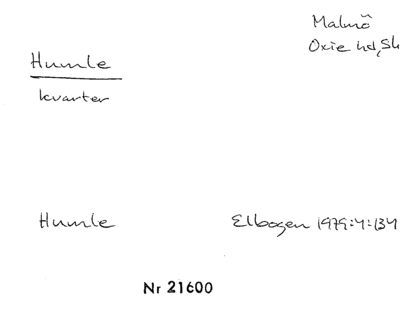 Malmö
Oxie hd, Sk
Humle
kvarter
Humle Elbogen 1979:4:134
Nr 21600